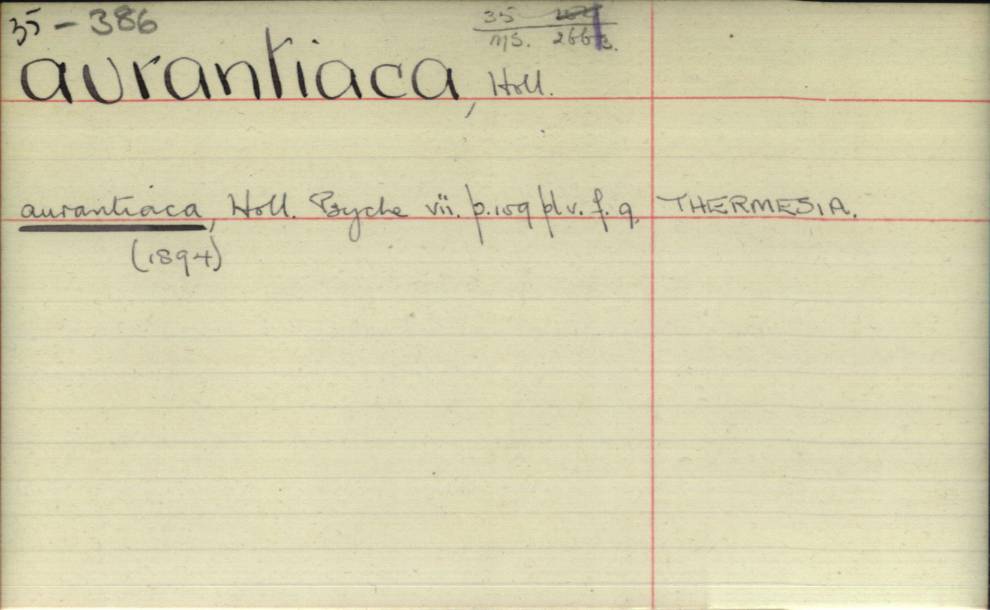 35-386
35
MS. 266 B.
aurantiaca, Holl.
aurantiaca, Holl. Psyche vii. p.109 pl v. f. 9. THERMESIA.
(1894)